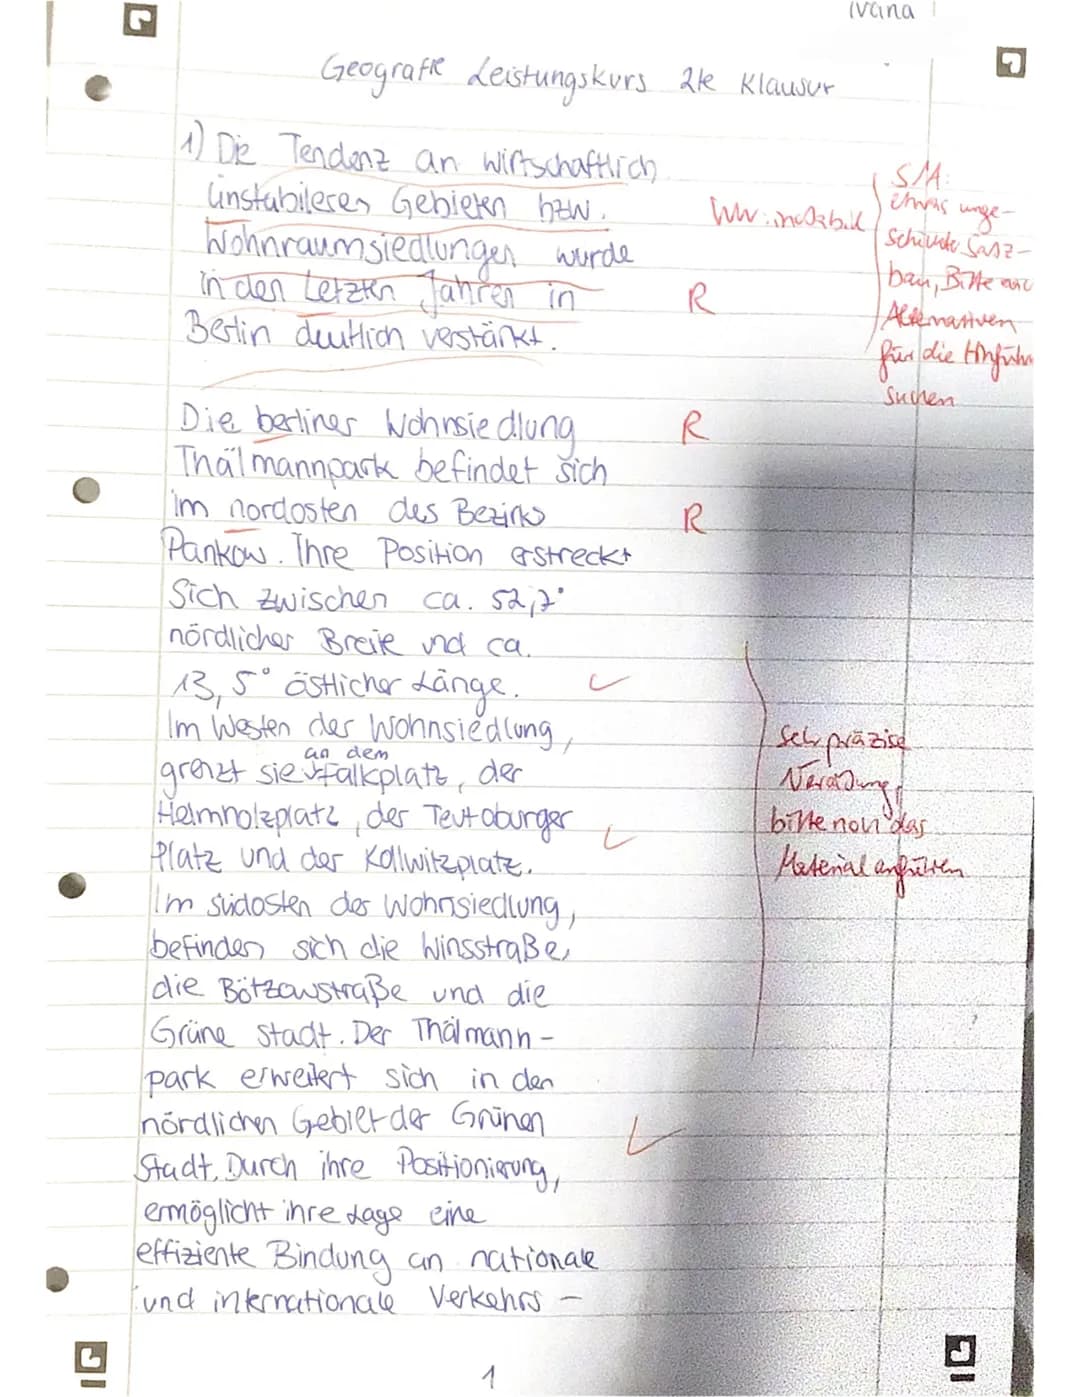 Ivana
Geografie Leistungskurs 2te Klausur
1) Die Tendenz an wirtschaftlich
instabileren Gebieten bzw.
Wohnraumsiedlungen wurde
in den Letzten Jahren in
Berlin deutlich verstärkt.
Ww: instabil
R
S/A:
etwas unge-
schickte Satz-
bau, Bitte
Alternativen
für die Hinführ
suchen
Die berliner Wohnsiedlung
R
Thälmannpark befindet sich
im nordosten des Bezirks
R
Pankow. Ihre Position erstreckt
Sich zwischen ca. 52,7°
nördlicher Breite und ca.
13,5° östlicher Länge.
Im Westen der Wohnsiedlung,
an dem
grenzt sie Falkplatz, der
Helmholzplatz, der Teutoburger
Platz und der Kollwitzplatz.
Im südosten der Wohnsiedlung,
befinden sich die Winsstraße,
die Bötzowstraße und die
Grüne Stadt. Der Thälmann-
park erweitert sich in den
nördlichen Gebiet der Grünen
Stadt. Durch ihre Positionierung,
ermöglicht ihre Lage eine
effiziente Bindung an nationale
und internationale Verkehrs-
Sehr präzise
Verortung,
bitte noch das
Material anführen
1